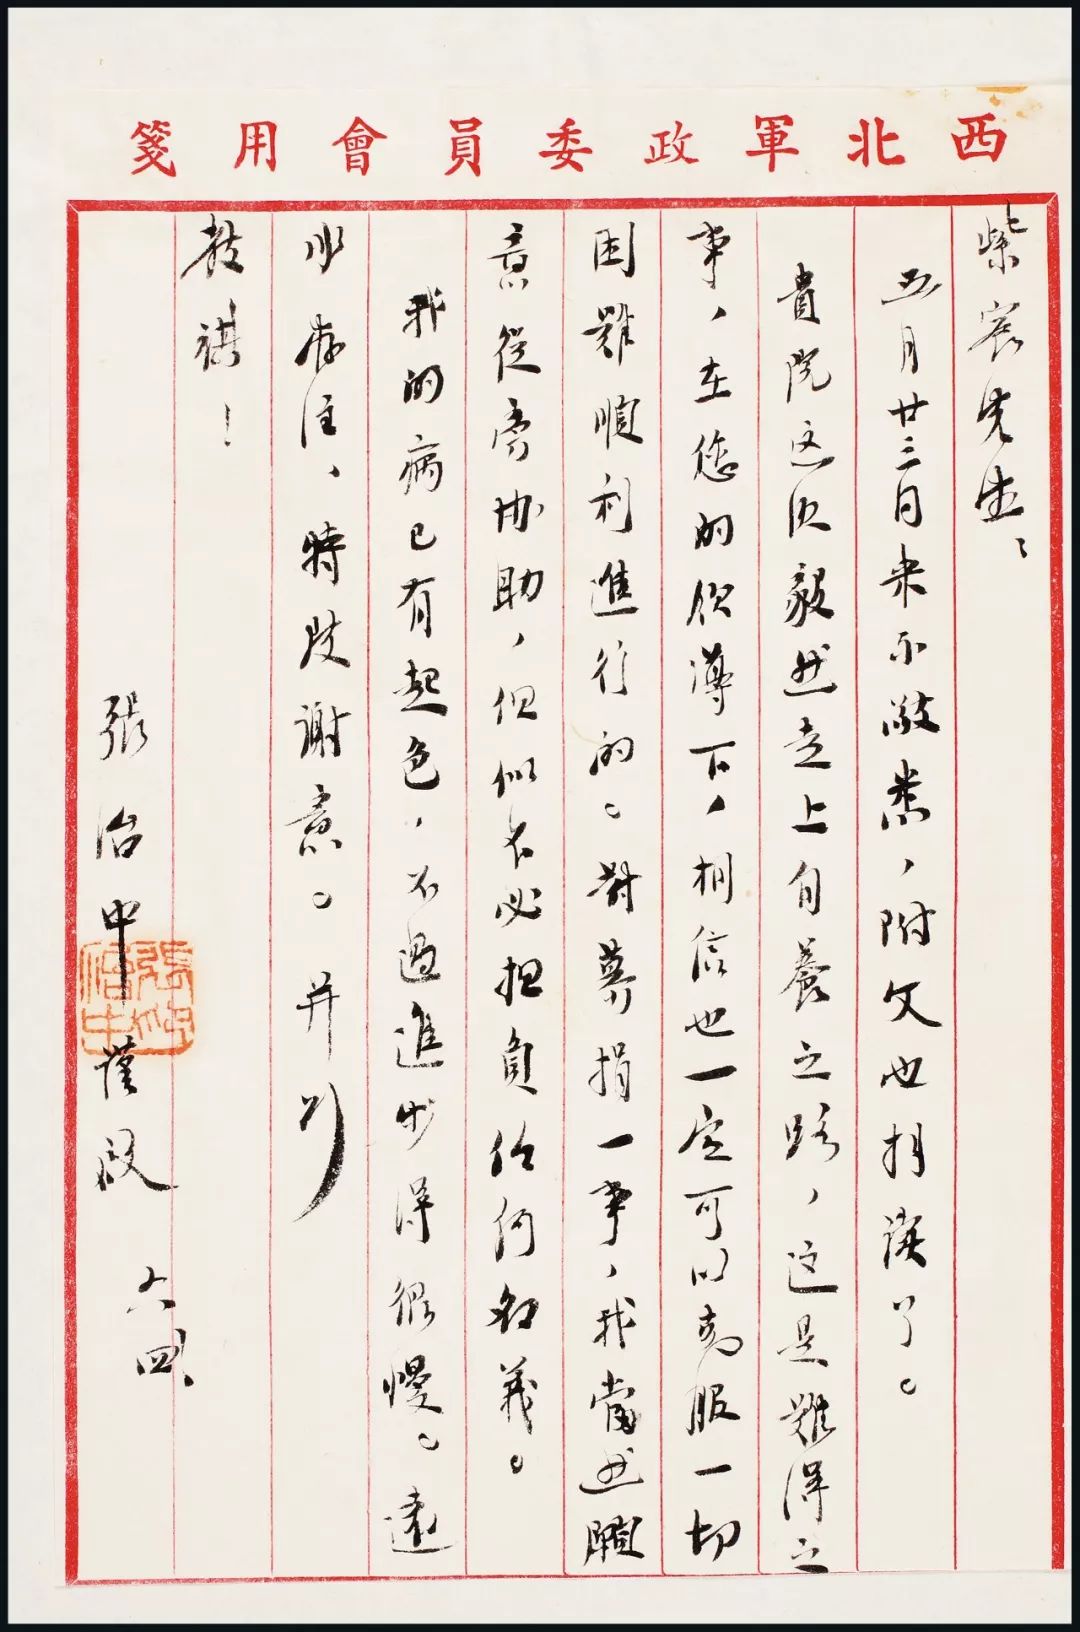 西北軍政委員會用箋
紫宸先生：
五月廿三日来示敬悉，附文也拜读了。
貴院这次毅然走上自養之路，这是難得之
事，在您的领導下，相信也一定可以克服一切
困難順利進行的。對募捐一事，我當然願
意從旁协助，但似不必担負任何名義。
我的病已有起色，不過進步得很慢。遠
承存注，特致謝意。并頌
教祺！
張治中謹啟 六、四、
張治中印